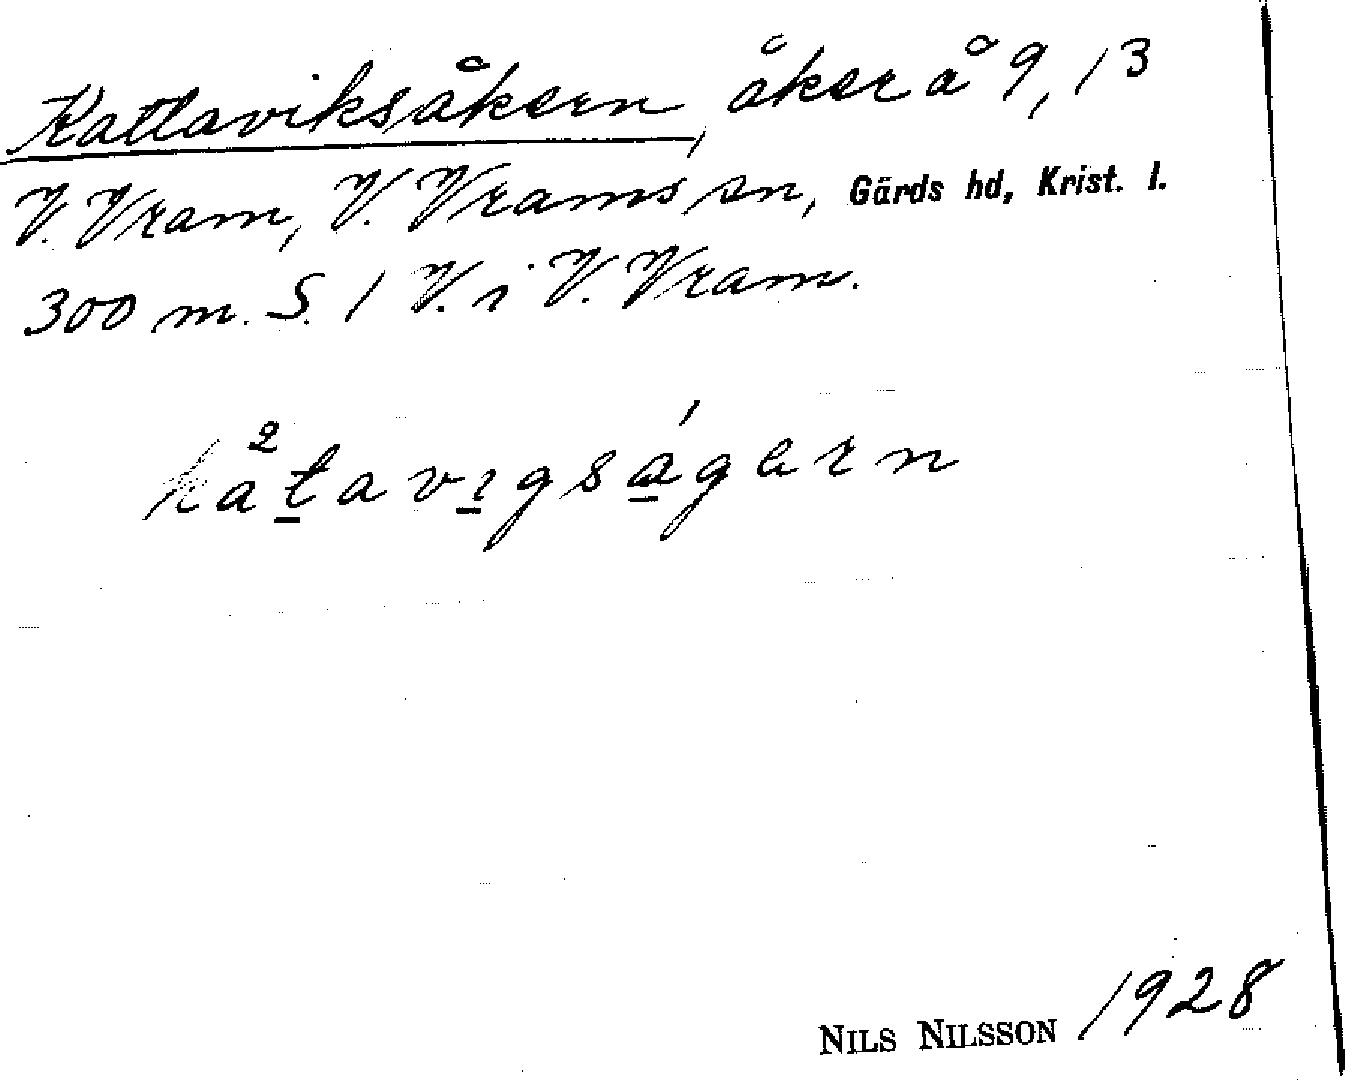 Kattaviksåkern, åker å 9, 13
V. Vram, V. Vrams sn, Gärds hd, Krist. l.
300 m. S. / V. i V. Vram.
ka²tavıgság ern
NILS NILSSON 1928